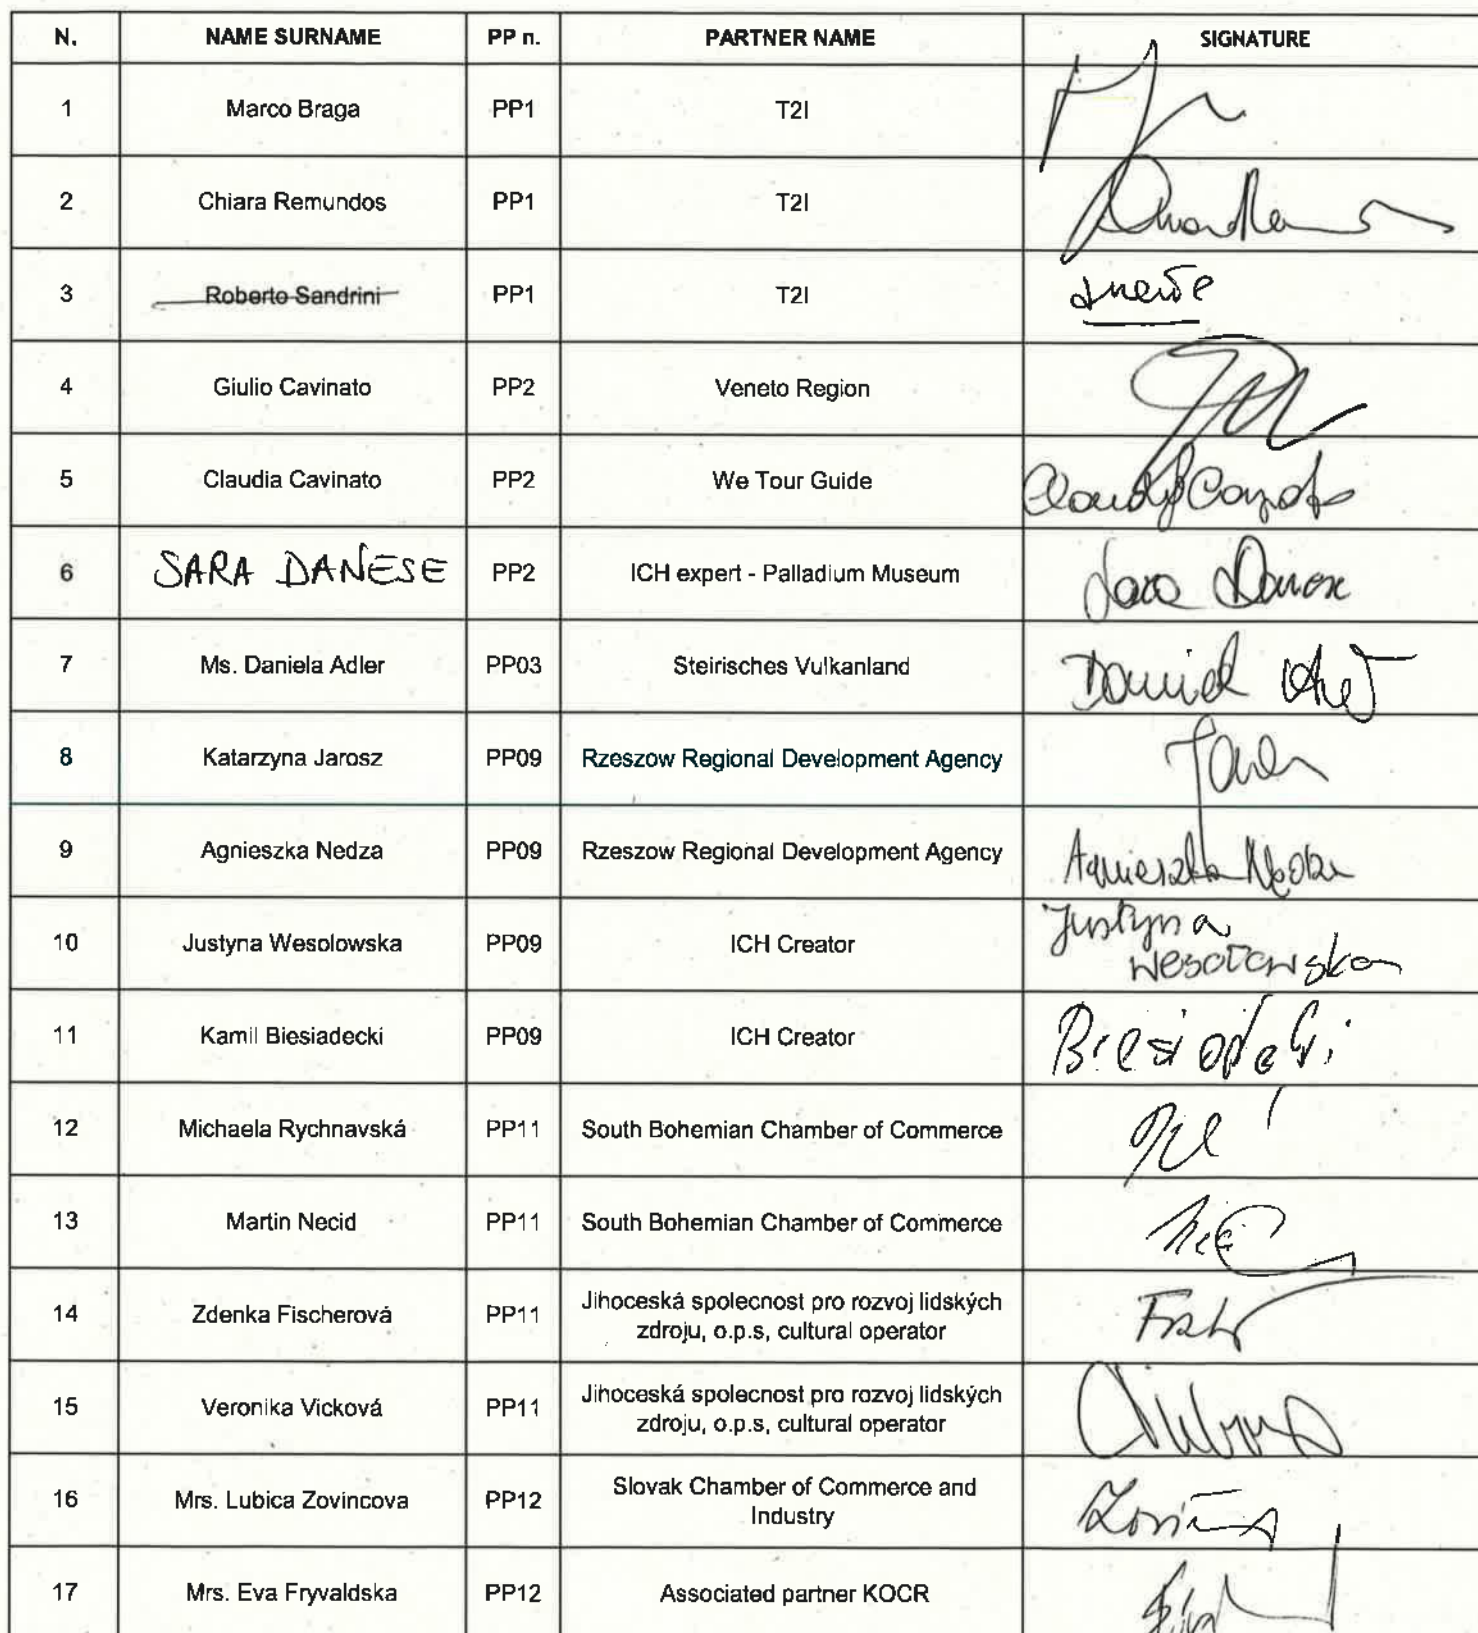 N. NAME SURNAME PP n. PARTNER NAME SIGNATURE
1 Marco Braga PP1 T2I
2 Chiara Remundos PP1 T2I
3 Roberto Sandrini PP1 T2I
4 Giulio Cavinato PP2 Veneto Region
5 Claudia Cavinato PP2 We Tour Guide
6 SARA DANESE PP2 ICH expert - Palladium Museum Sara Danese
7 Ms. Daniela Adler PP03 Steirisches Vulkanland
8 Katarzyna Jarosz PP09 Rzeszow Regional Development Agency
9 Agnieszka Nedza PP09 Rzeszow Regional Development Agency Agnieszka
10 Justyna Wesolowska PP09 ICH Creator Justyna
Wesołowska
11 Kamil Biesiadecki PP09 ICH Creator
12 Michaela Rychnavská PP11 South Bohemian Chamber of Commerce
13 Martin Necid PP11 South Bohemian Chamber of Commerce
14 Zdenka Fischerová PP11 Jihoceská spolecnost pro rozvoj lidských
zdroju, o.p.s, cultural operator
15 Veronika Vicková PP11 Jihoceská spolecnost pro rozvoj lidských
zdroju, o.p.s, cultural operator
16 Mrs. Lubica Zovincova PP12 Slovak Chamber of Commerce and
Industry
17 Mrs. Eva Fryvaldska PP12 Associated partner KOCR